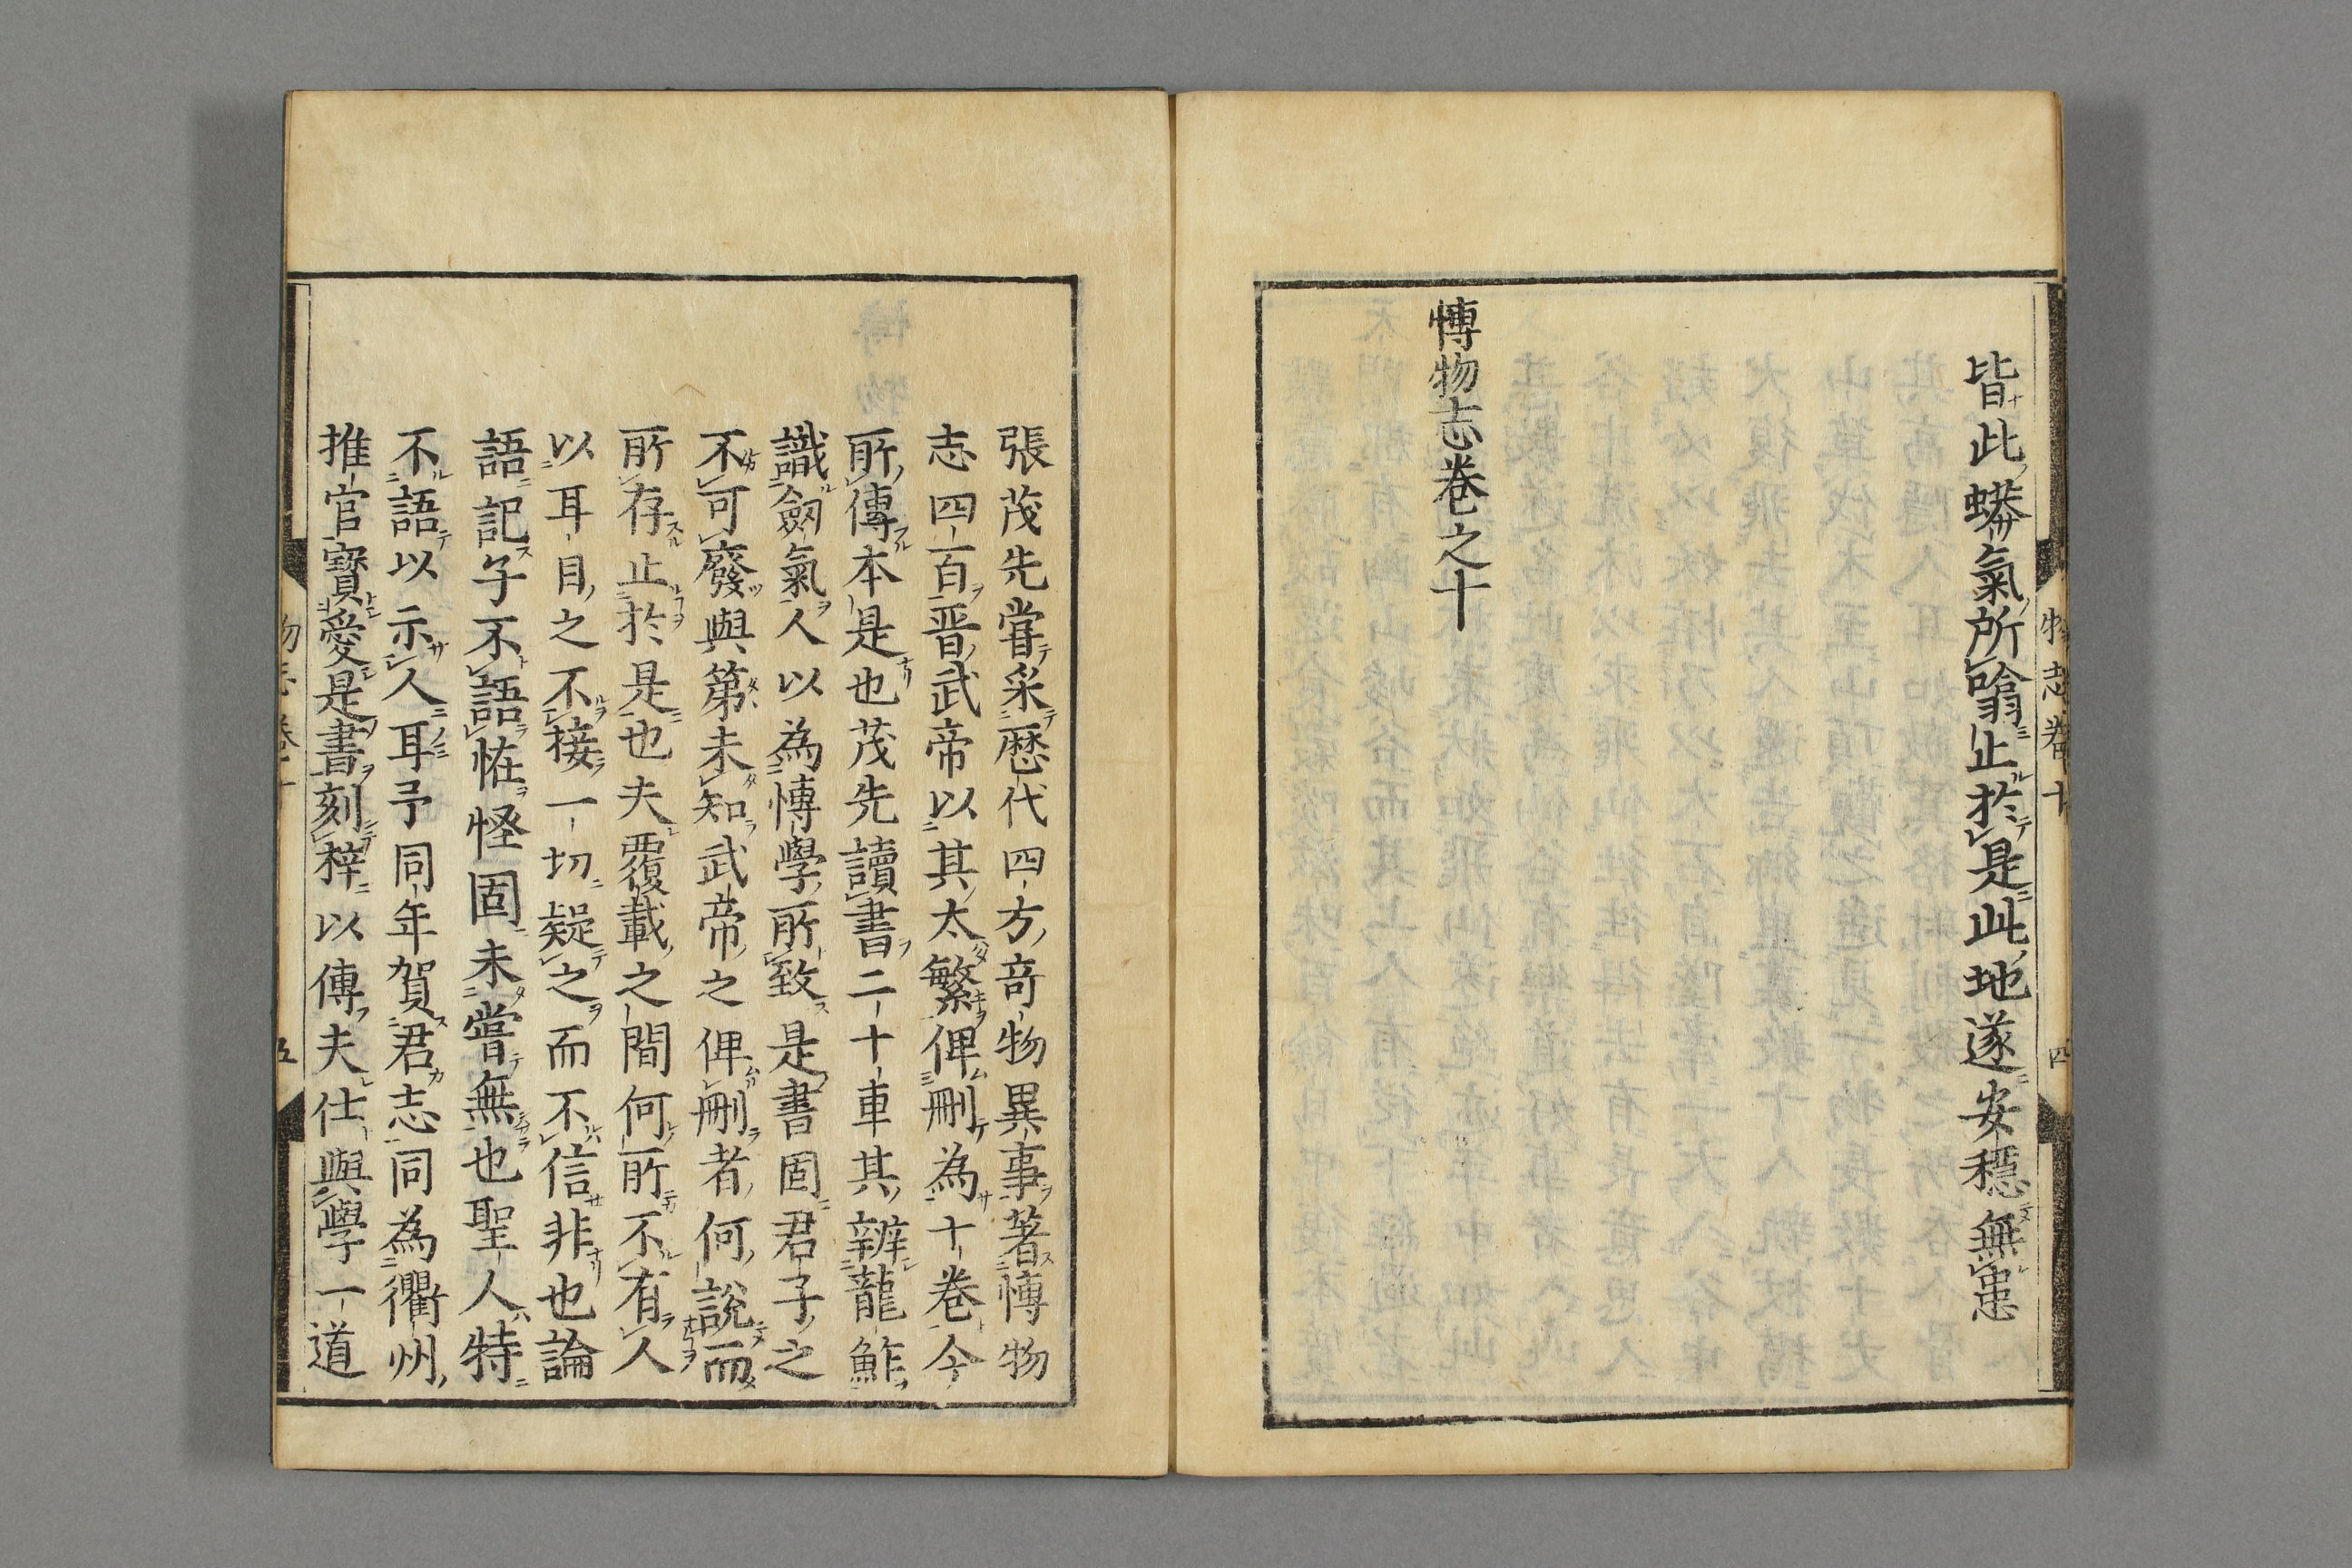 皆此蟒氣所噏止於是此地遂安穩無患
博物志卷之十
物志卷十
四
張茂先嘗采歷代四方奇物異事著博物
志四百晋武帝以其太繁俾刪為十卷今
所傳本是也茂先讀書二十車其辨龍鮓
識劒氣人以為博學所致是書固君子之
不可廢與第未知武帝之俾刪者何說而
所存止於是也夫覆載之間何所不有人
以耳目之不接一切疑之而不信非也論
語記子不語恠怪固未嘗無也聖人特
不語以示人耳予同年賀君志同為衢州
推官寶愛是書刻梓以傳夫仕與學一道
物志卷十
五